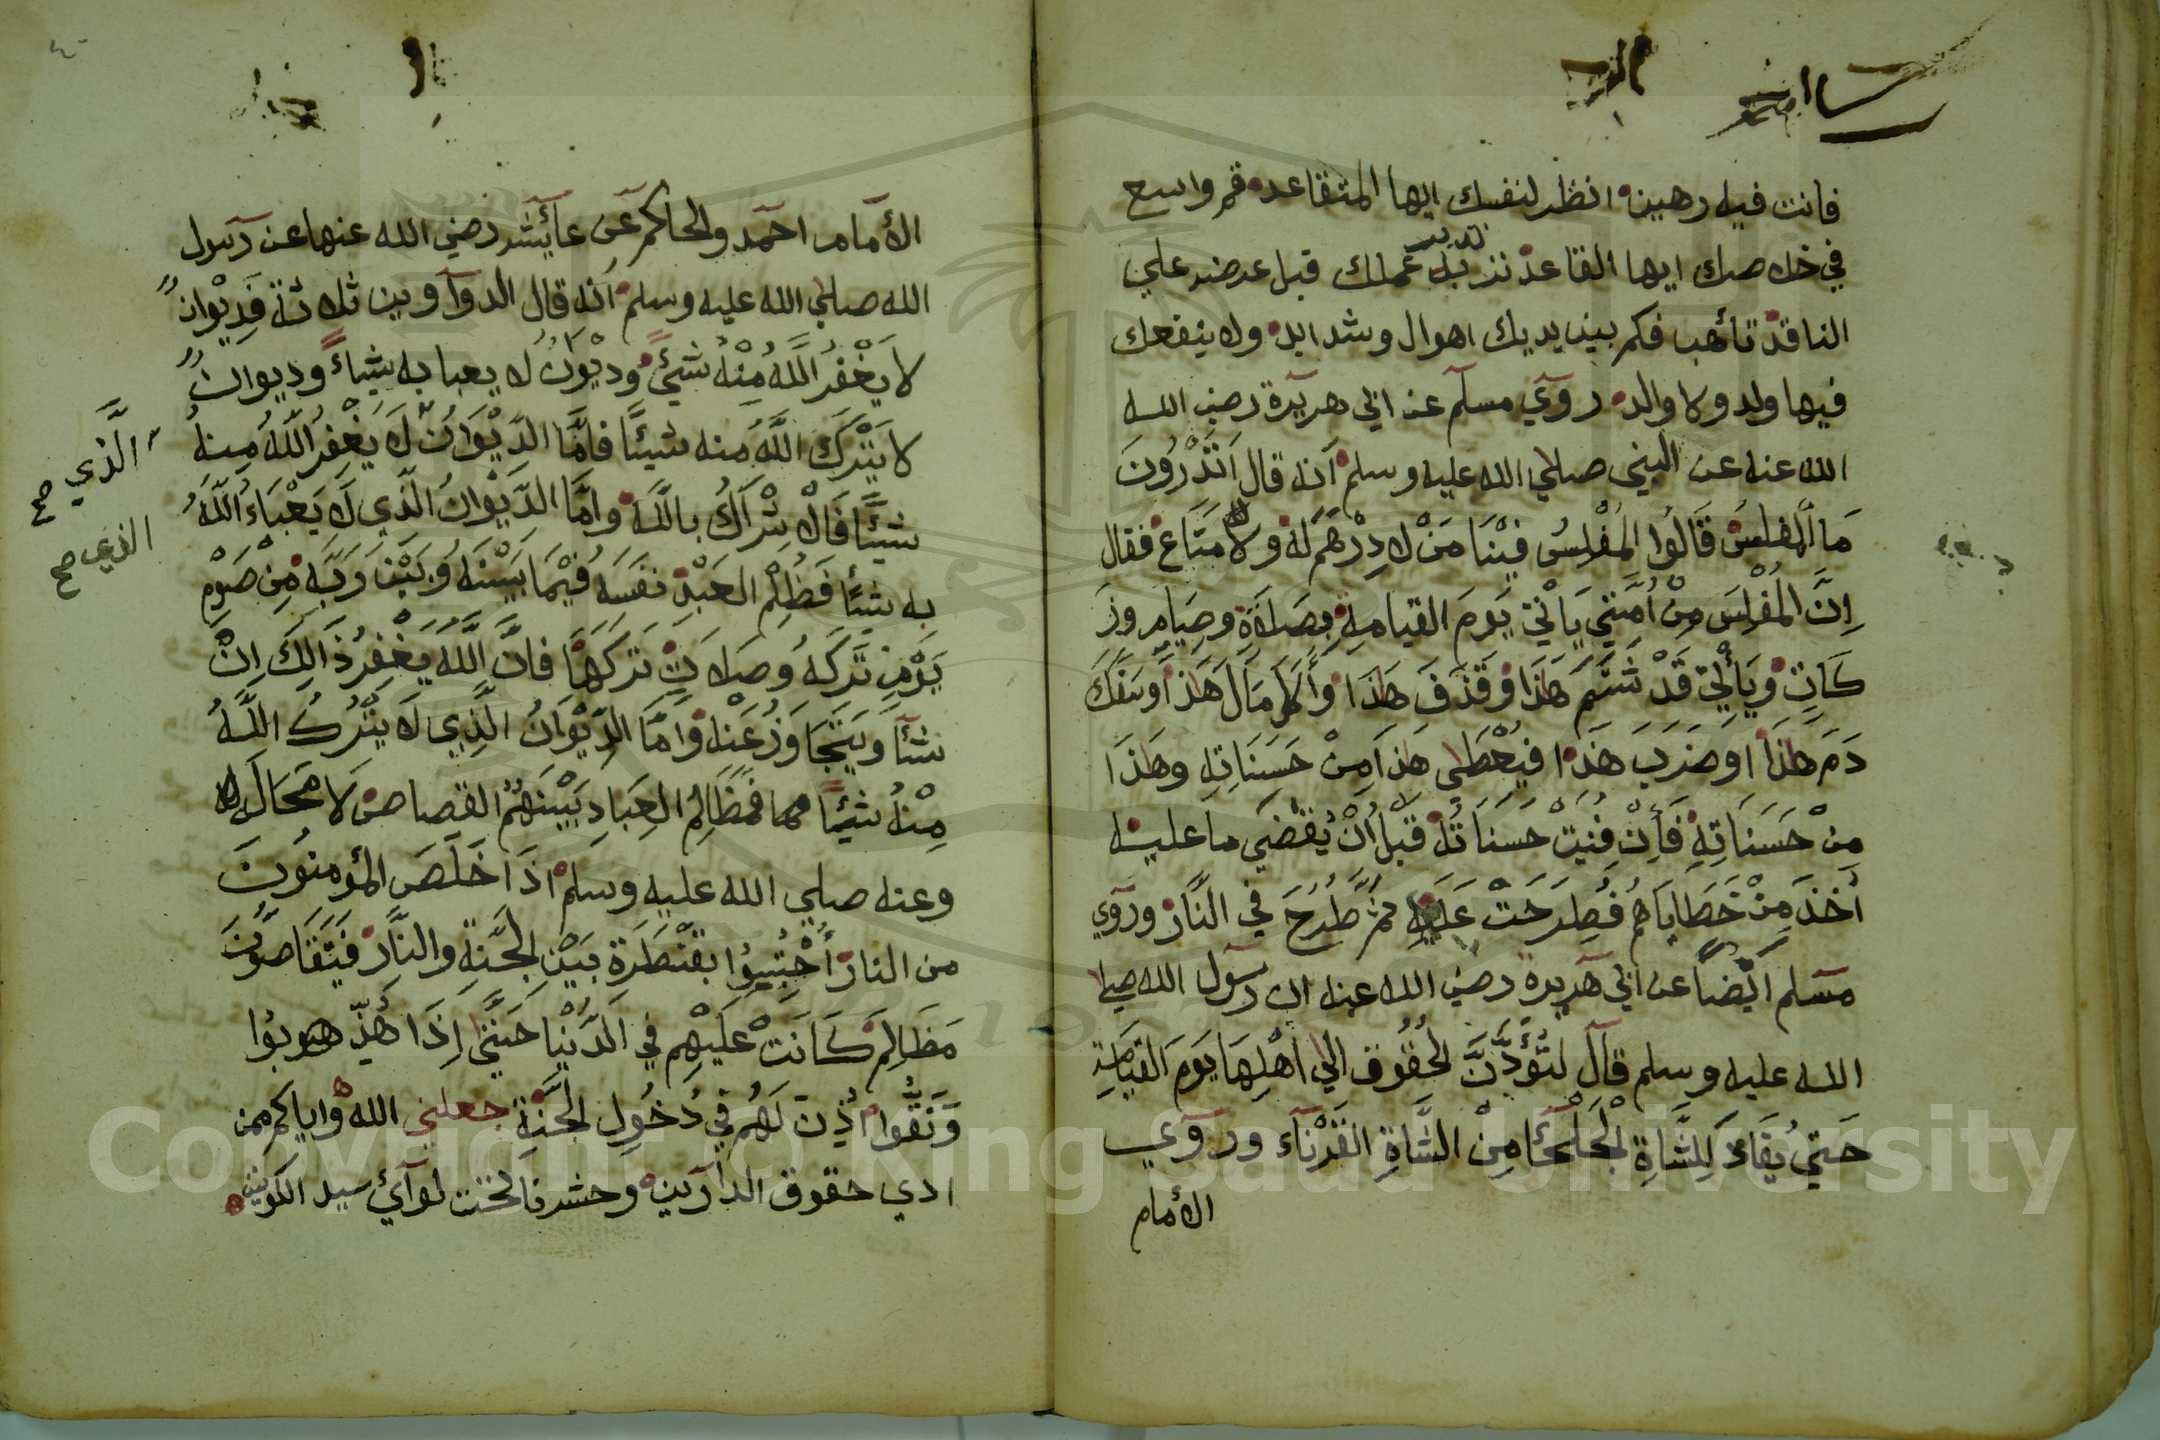 فانت فيه رهين انظر لنفسك ايها المتقاعد قم واسع
في خلاصك ايها القاعد تدبر عملك قبل عرضه علي
الناقد تأهب فكم بين يديك اهوال وشدايد ولا ينفعك
فيها ولد ولا والد روي مسلم عن ابي هريرة رضي الله
الله عنه عن النبي صلي الله عليه وسلم أنه قال اَتَدْرُونَ
مَا المُفلِسُ قَالُوا المُفْلِسُ فِيْنَا مَنْ لا دِرْهَمَ لَهُ وَلا مَتَاعَ فقال
اِنَّ المُفْلِسَ مِنْ اُمَّتِي يَاْتِي يَومَ القيامةِ بِصَلَاةٍ وصِيَامٍ وزَ
كَاتٍ وَيَأْتِي قَدْ شَتَمَ هَذَا وَقَذَفَ هَذَا وَأَكَلَ مَالَ هَذَا وسَفَكَ
دَمَ هَذَا اوضَرَبَ هَذَا فيُعْطَي هَذَا مِنْ حَسَنَاتِهِ وهَذَا
مِنْ حَسَنَاتِهِ فَاِنْ فَنِيَتْ حَسَنَاتُهُ قَبْلَ اَنْ يُقْضَي ما عليه
اُخِذَ مِنْ خَطَايَاهُم فَطُرِحَتْ عَلَيهِ ثم طُرِحَ في النَّار وروي
مسلم ايْضاً عن ابي هريرة رضي الله عنه ان رسول الله صلي
الله عليه وسلم قال لَتُؤَدُّنَّ الحُقُوق الي اَهْلِهَا يَومَ القيَامَةِ
حَتيَّ يُقَادَ لِلشَّاةِ الجَلْحَا مِنْ الشَّاةِ القَرْنَآء وروي
الأمام
الأمام احمد والحاكم عن عائشه رضي الله عنها عن رسول
الله صلي الله عليه وسلم أنه قال الدواوين ثلاثة فَدِيْوانٌ
لا يَغْفِرُ اللَّهُ مِنْهُ شئً وديْوَانٌ لا يعبا به شيأً وديوانٌ
لا يَتْرُكُ اللَّهُ منه شيئًا فامَّا الدِّيْوَانُ لَا يَغْفِرُ اللَّهُ مِنهُ
الَّذي صح
شيئًا فَالاْشْرَاكُ باللَّه وامَّا الدِّيْوَانُ الَّذِي لَا يَعْبَاءُ اللَّهُ
الذي صح
به شيئًا فَظُلْمُ العَبْدِ نَفسَهُ فِيْمَا بَيْنَهُ وبَيْنَ رَبِّهِ مِنْ صَوْمِ
يَوْمٍ تَرَكَهُ وصَلاتٍ تركَهَا فانَّ اللَّهَ يَغْفِرُ ذَالِكَ اِنْ
شَآ وَيَتَجَاوَزُ عَنْهُ وَامَّا الدِّيْوَانُ الَّذِي لَا يَتْرُكُ اللَّهُ
مِنْهُ شَيْئًا فمَظَالِمُ العِبَادِ بَيْنَهُمُ القصاص لَا مَحَالَه
وعنه صلي الله عليه وسلم اذَا خَلَصَ المُؤمِنُونَ
من النار اُحْتُبِسُوا بقَنْطَرَة بَيْنَ الجَنَّةِ والنَّارِ فَيَتَقَاصُّونَ
مَظَالِمَ كَانَتْ عَلَيْهِم في الدُّنْيَا حَتيَّ اِذَا هُذِّبُوا
وَنَقُّوا اُذِنَ لَهُم في دُخُولِ الجَنَّةِ جعلني الله واياكم ممن
ادي حقوق الدارين وحشرنا تحت لوآئ سيد الكونين